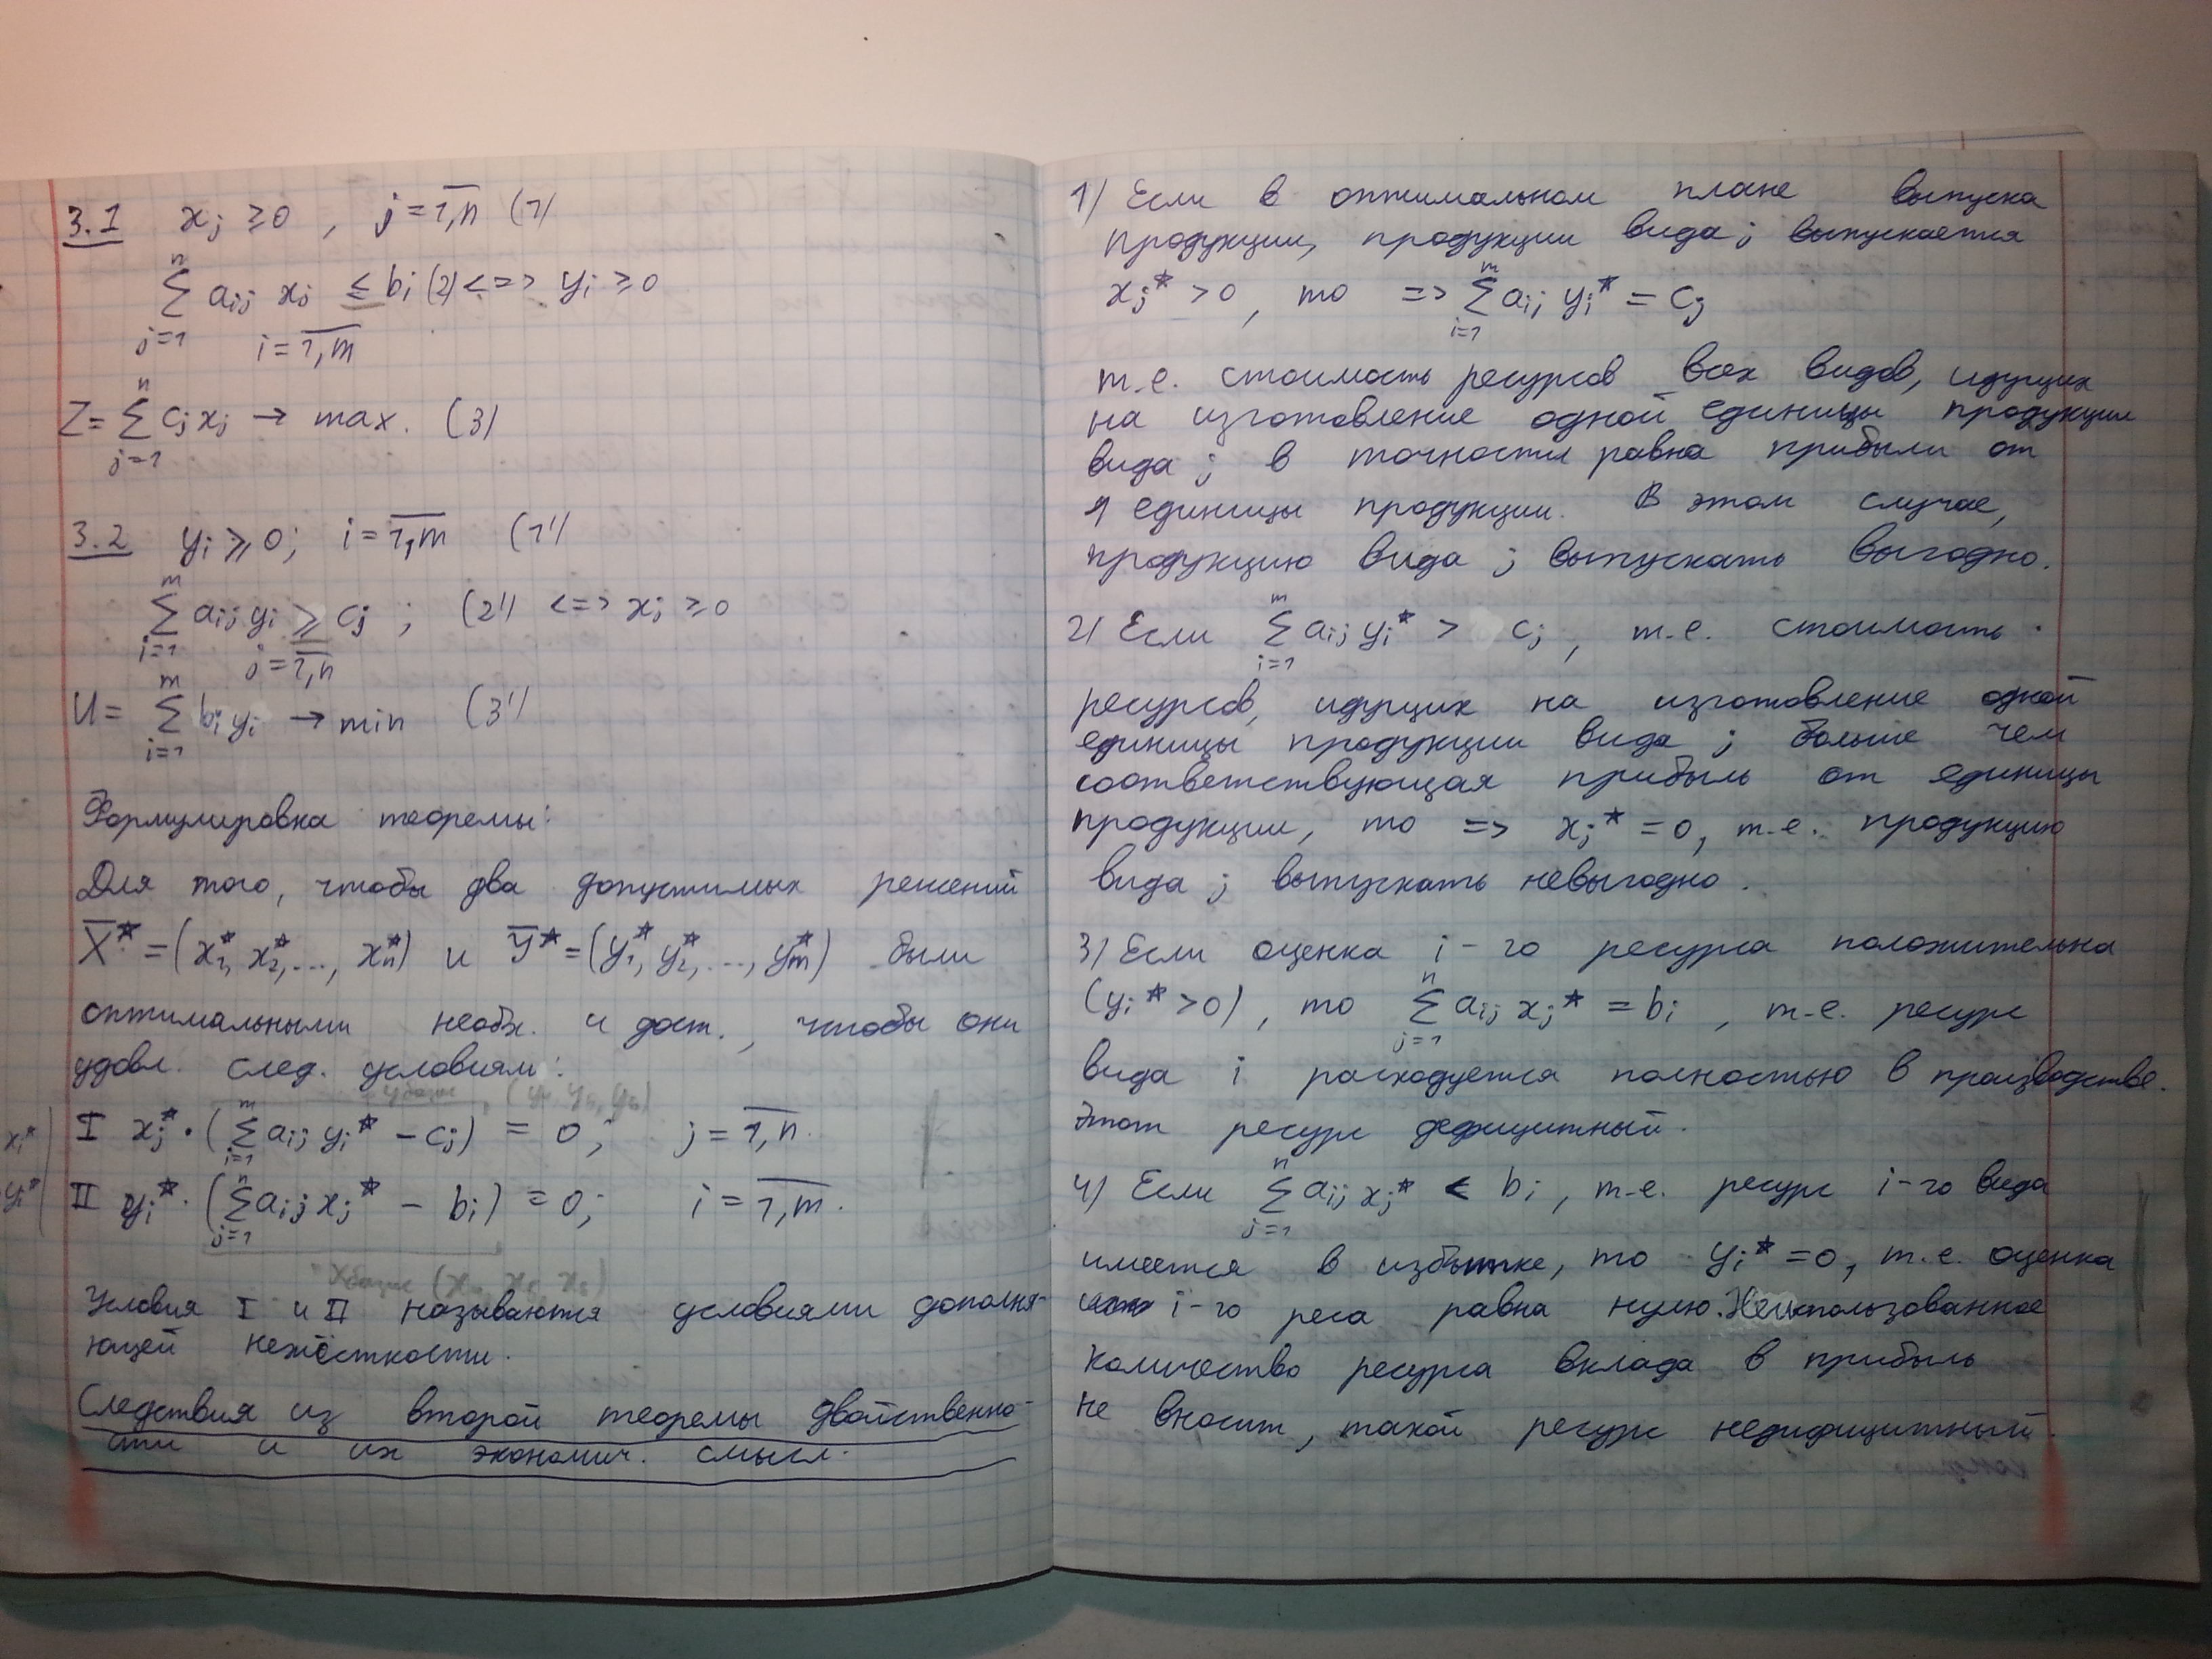 3.1 xj ≥ 0 , j = 1,n (1)
n
∑ aij xj ≤ bi (2) <=> yi ≥ 0
j=1 i = 1,m
n
Z = ∑ cj xj → max. (3)
j=1
3.2 yi ≥ 0; i = 1,m (1')
m
∑ aij yi ≥ cj ; (2') <=> xj ≥ 0
i=1 j = 1,n
m
U = ∑ bi yi → min (3')
i=1
Формулировка теоремы:
Для того, чтобы два допустимых решений
X* = (x1*, x2*, ..., xn*) и Y* = (y1*, y2*, ..., ym*) были
оптимальными необх. и дост., чтобы они
удовл. след. условиям:
I xj* · (∑ aij yi* - cj) = 0; j = 1,n.
II yi* · (∑ aij xj* - bi) = 0; i = 1,m.
Условия I и II называются условиями дополня-
ющей нежёсткости.
Следствия из второй теоремы двойственно-
сти и их экономич. смысл.
1) Если в оптимальном плане выпуска
продукции, продукции вида j выпускается
m
xj* > 0, то => ∑ aij yi* = cj
i=1
т.е. стоимость ресурсов всех видов, идущих
на изготовление одной единицы продукции
вида j в точности равна прибыли от
1 единицы продукции. В этом случае,
продукцию вида j выпускать выгодно.
m
2) Если ∑ aij yi* > cj , т.е. стоимость
i=1
ресурсов, идущих на изготовление одной
единицы продукции вида j больше чем
соответствующая прибыль от единицы
продукции, то => xj* = 0, т.е. продукцию
вида j выпускать невыгодно.
3) Если оценка i-го ресурса положительна
n
(yi* > 0), то ∑ aij xj* = bi , т.е. ресурс
j=1
вида i расходуется полностью в производстве.
Этот ресурс дефицитный.
n
4) Если ∑ aij xj* < bi , т.е. ресурс i-го вида
j=1
имеется в избытке, то yi* = 0, т.е. оценка
i-го реса равна нулю. Неиспользованное
количество ресурса вклада в прибыль
не вносит, такой ресурс недифицитный.